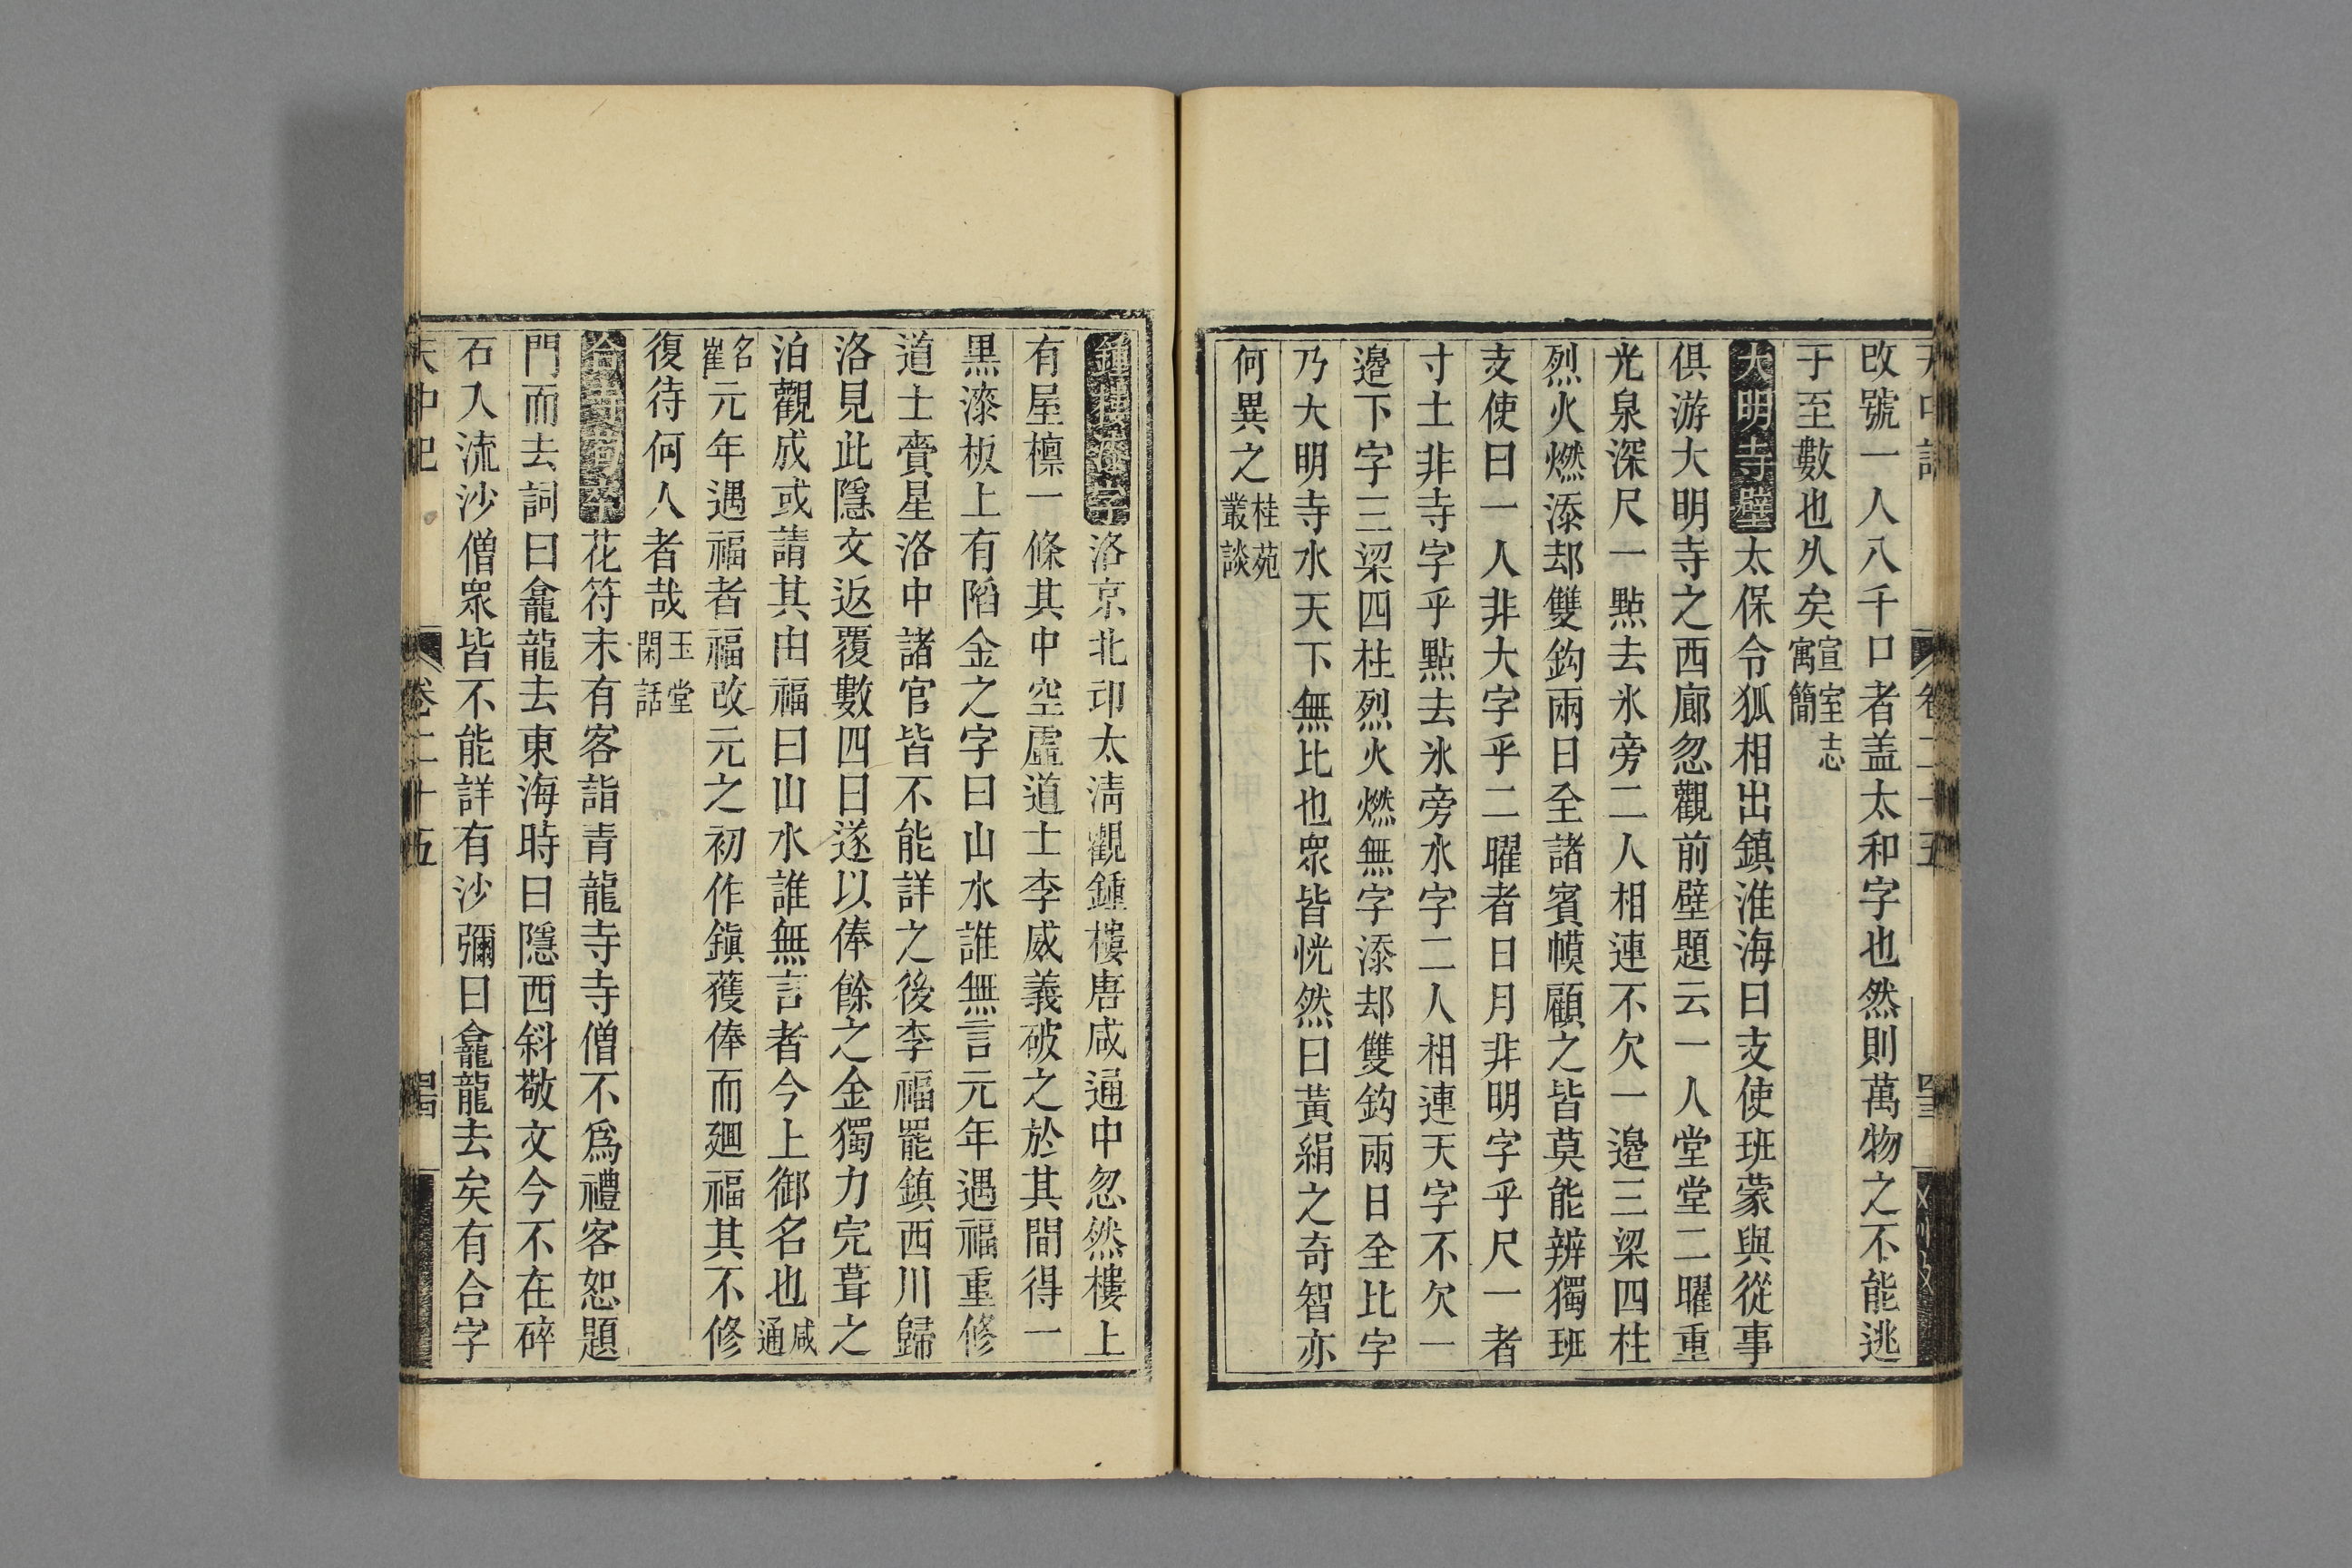 改號一人八千口者盖太和字也然則萬物之不能逃
于至數也久矣宣室志寓簡
大明寺壁太保令狐相出鎮淮海日支使班蒙與從事
俱游大明寺之西廊忽觀前壁題云一人堂堂二曜重
光泉深尺一點去氷旁二人相連不欠一邉三梁四柱
烈火燃添却雙鈎兩日全諸賓幙顧之皆莫能辨獨班
支使曰一人非大字乎二曜者日月非明字乎尺一者
寸土非寺字乎點去氷旁水字二人相連天字不欠一
邉下字三梁四柱烈火燃無字添却雙鈎兩日全比字
乃大明寺水天下無比也衆皆恍然曰黃絹之奇智亦
何異之桂苑叢談
鍾樓漆字洛京北邙太清觀鍾樓唐咸通中忽然樓上
有屋檩一條其中空虛道士李威義破之於其間得一
黒漆板上有陷金之字曰山水誰無言元年遇福重修
道士賫星洛中諸官皆不能詳之後李福罷鎮西川歸
洛見此隱文返覆數四曰遂以俸餘之金獨力完葺之
泊觀成或請其由福曰山水誰無言者今上御名也咸通
名崔元年遇福者福改元之初作鎮獲俸而廻福其不修
復待何人者哉玉堂閑話
合寺苟卒花符末有客詣青龍寺寺僧不爲禮客恕題
門而去詞曰龕龍去東海時日隱西斜敬文今不在碎
石入流沙僧衆皆不能詳有沙彌曰龕龍去矣有合字
天中記
卷二十五